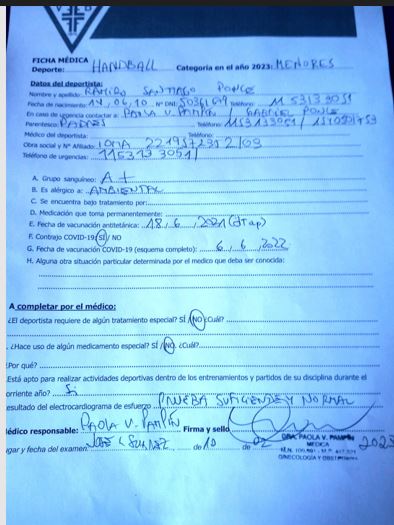 FICHA MÉDICA
Deporte: HANDBALL Categoría en el año 2023: MENORES
Datos del deportista:
Nombre y apellido: RAMIRO SANTIAGO PONCE
Fecha de nacimiento: 14, 06, 10 Nº DNI: Teléfono: 11 5313 3051
En caso de urgencia contactar a: PAOLA V. PAMPÍN GABRIEL PONCE
Parentesco: PADRES Teléfono: 1153133051 /
Médico del deportista: Teléfono:
Obra social y Nº Afiliado: IOMA 221957235 2/03
Teléfono de urgencias: 1153133051/
A. Grupo sanguíneo: A +
B. Es alérgico a: AMBIENTAL
C. Se encuentra bajo tratamiento por:
D. Medicación que toma permanentemente:
E. Fecha de vacunación antitetánica: 18, 6, 2021 (dTap)
F. Contrajo COVID-19: SI / NO
G. Fecha de vacunación COVID-19 (esquema completo): 6, 6, 2022
H. Alguna otra situación particular determinada por el medico que deba ser conocida:
A completar por el médico:
¿El deportista requiere de algún tratamiento especial? SÍ /NO ¿Cuál?
. ¿Hace uso de algún medicamento especial? SÍ /NO ¿Cuál?
¿Por qué?
Está apto para realizar actividades deportivas dentro de los entrenamientos y partidos de su disciplina durante el
orriente año? Si
esultado del electrocardiograma de esfuerzo PRUEBA SUFICIENTE Y NORMAL
lédico responsable: PAOLA V. PAMPÍN Firma y sello
DRA. PAOLA V. PAMPÍN
MEDICA
GINECOLOGÍA Y OBSTETRICIA
ugar y fecha del examen: JOSE C SUAREZ de 10 de 02 2023